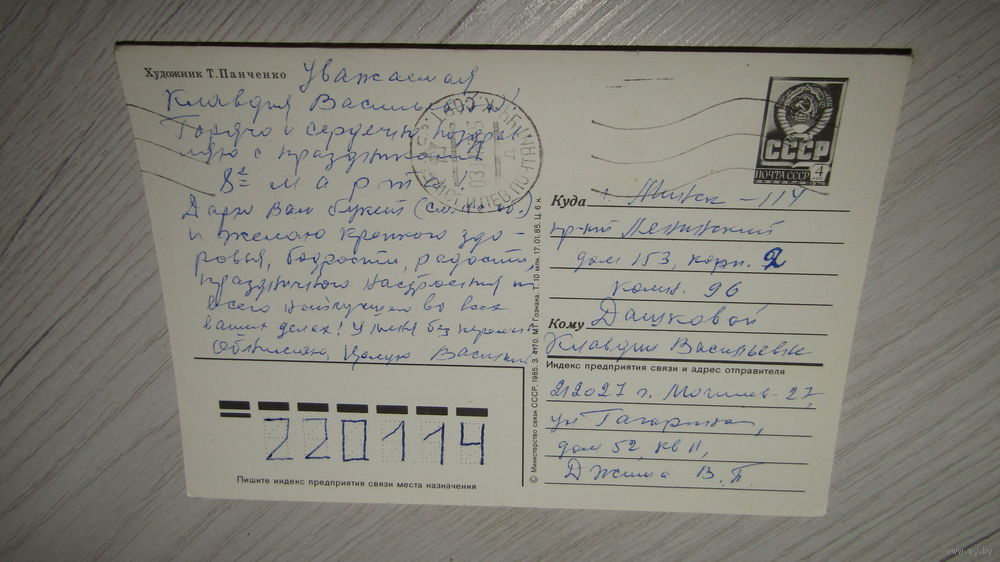 Художник Т. Панченко
Уважаемая
Клавдия Васильевна!
Горячо и сердечно поздрав-
ляю с праздником
8 е марта!
Дарю Вам букет (см. на об.)
и желаю крепкого здо-
ровья, бодрости, радости,
праздничного настроения и
всего наилучшего во всех
ваших делах! У меня без перемен.
Обнимаю, Целую Василий
220114
Пишите индекс предприятия связи места назначения
© Министерство связи СССР, 1985. З. 4170. МТ Гознака. Т. 10 млн. 17.01.85. Ц. 6 к.
ПОЧТА СССР
4
1976
Куда г. Минск - 114
пр-кт Ленинский
дом 153, корп. 2
комн. 96
Кому Дашковой
Клавдии Васильевне
Индекс предприятия связи и адрес отправителя
212027 г. Могилев-27,
ул Гагарина,
дом 52, кв 11,
Джима В. П.
www.ay.by